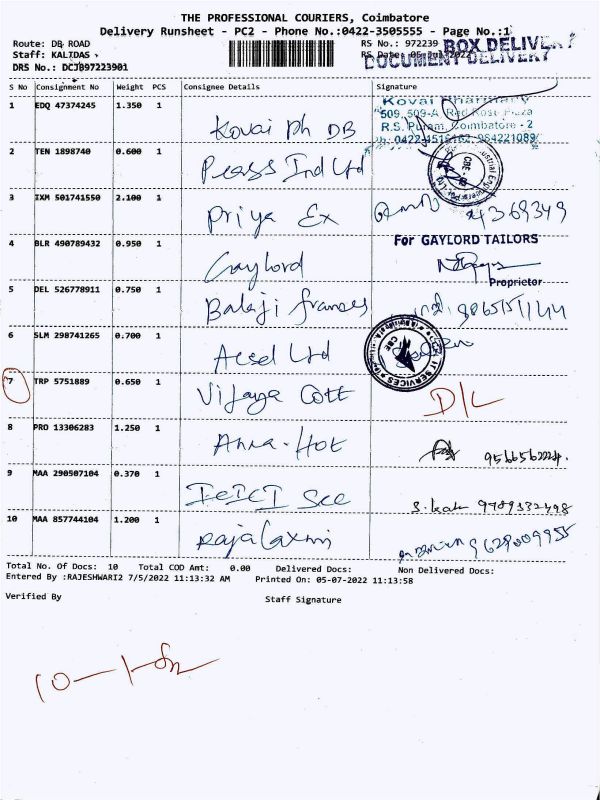 THE PROFESSIONAL COURIERS, Coimbatore
Delivery Runsheet - PC2 - Phone No.:0422-3505555 - Page No.:1
Route: DB ROAD
RS No.: 972239
BOX DELIVERY
Staff: KALIDAS
RS Date: 05-Jul-2022
DOCUMENT DELIVERY
DRS No.: DCJ097223901
S No Consignment No Weight PCS Consignee Details Signature
1 EDQ 47374245 1.350 1 Kovai Ph DB
Kovai Pharmacy
509, 509-A Red Rose Plaza
R.S. Puram, Coimbatore - 2
2 TEN 1898740 0.600 1 Ind Ltd
3 IXM 501741550 2.100 1 Priya Ex
4 BLR 490789432 0.950 1 Gaylord
For GAYLORD TAILORS
Proprietor
5 DEL 526778911 0.750 1 Balaji frames
6 SLM 298741265 0.700 1 Ltd
IT SERVICES
CBE
7 TRP 5751889 0.650 1 Vijaya Cott D/L
8 PRO 13306283 1.250 1 Anna-Hot
9 MAA 290507104 0.370 1 ICICI Sec
10 MAA 857744104 1.200 1 Raja Laxmi
Total No. Of Docs: 10 Total COD Amt: 0.00 Delivered Docs: Non Delivered Docs:
Entered By :RAJESHWARI2 7/5/2022 11:13:32 AM Printed On: 05-07-2022 11:13:58
Verified By
Staff Signature